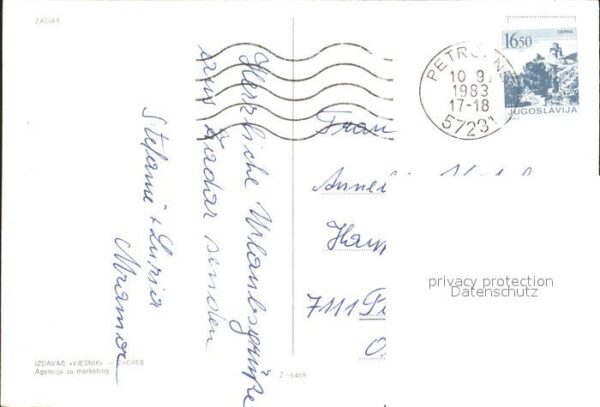 ZADAR
Herrliche Urlaubsgrüße
aus Zadar senden
Stefanie + Luzia
Mramor
IZDAVAČ «VJESNIK» — ZAGREB
Agencija za marketing
Z-6469
PETRČANE
10 9
1983
17-18
57231
16.50
JUGOSLAVIJA
Frau
7111
privacy protection
Datenschutz